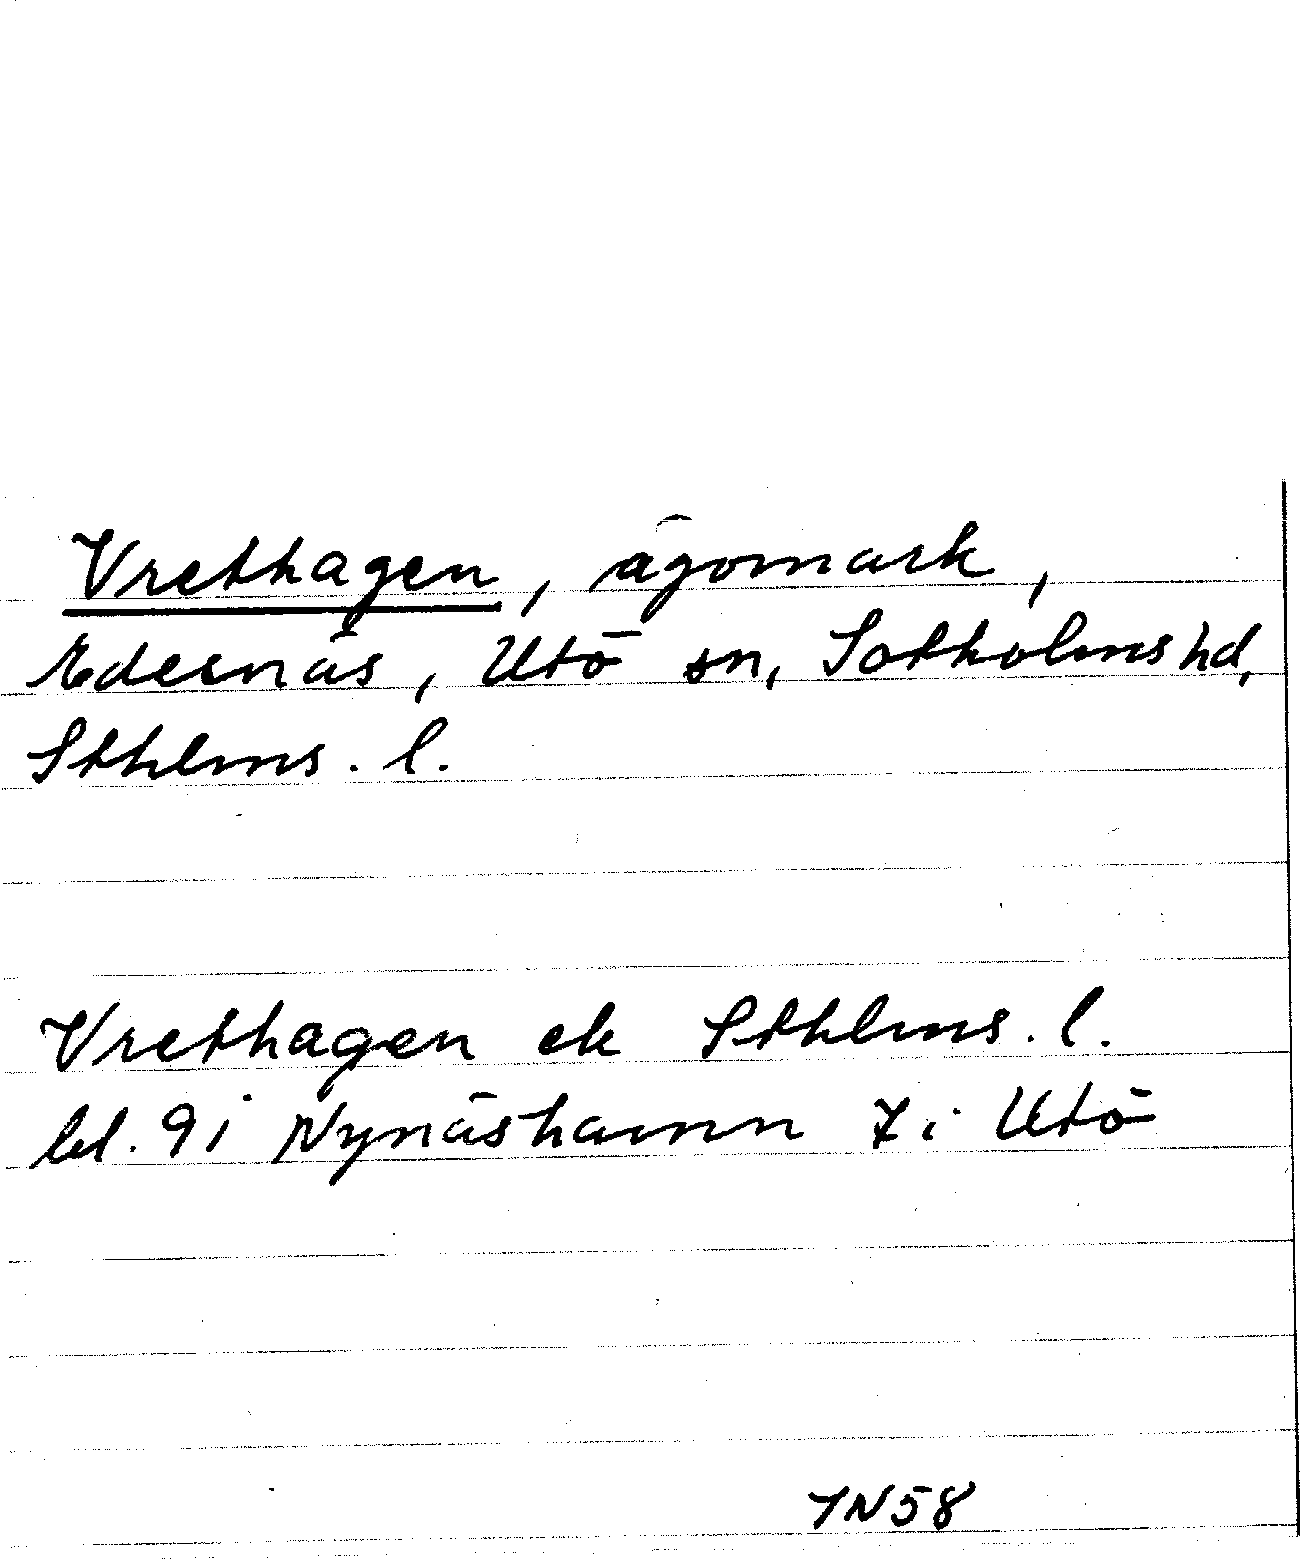 Vrethagen, ägomark,
Edesnäs, Utö sn, Sotholms hd,
Sthlms. l.
Vrethagen ek Sthlms. l.
bl. 91 Nynäshamn 7 i Utö
IN58